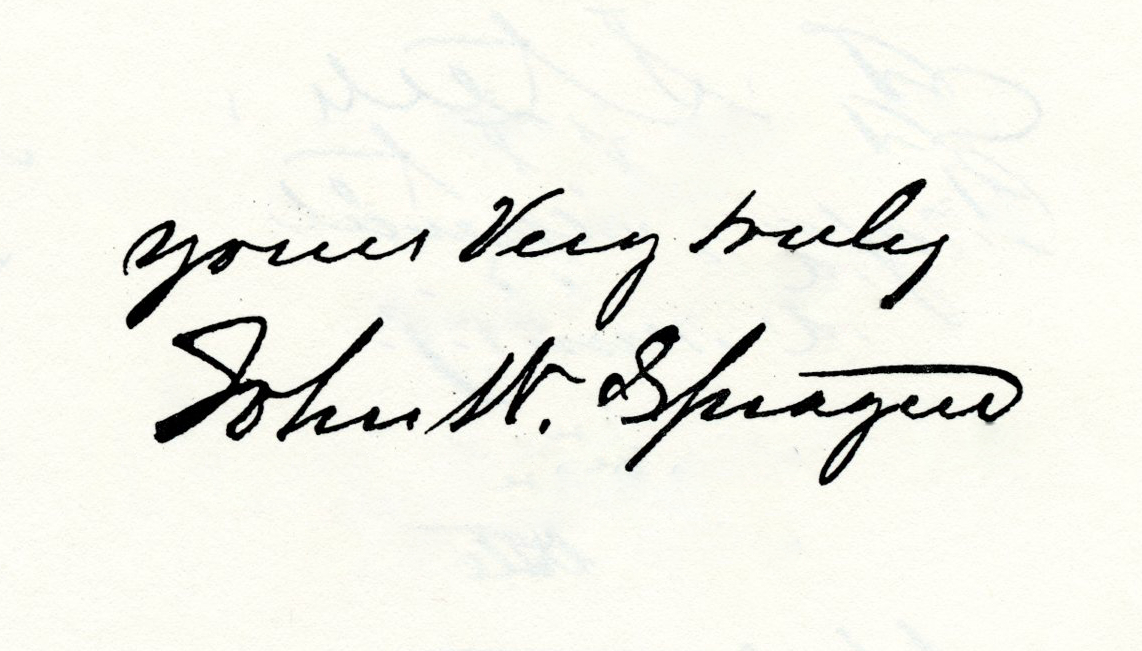 yours Very truly
John W. Sprague